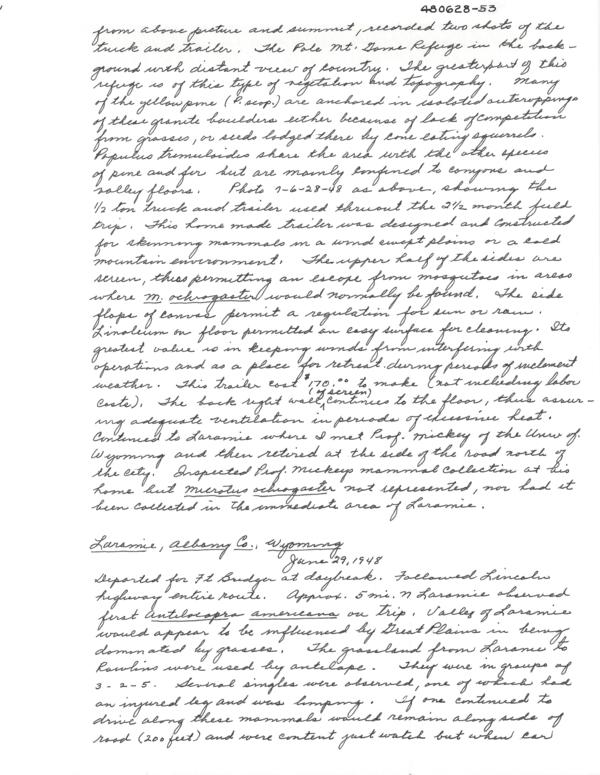 480628-53
from above picture and summit, recorded two shots of the
truck and trailer. The Pole Mt. Dome Refuge in the back-
ground with distant view of country. The greater part of this
refuge is of this type of vegetation and topography. Many
of the yellow pine (P. scop.) are anchored in isolated outcroppings
of these granite boulders either because of lack of competition
from grasses, or seeds lodged there by cone eating squirrels.
Populus tremuloides share the area with the other species
of pine and fir but are mainly confined to canyons and
valley floors. Photo 7-6-28-48 as above, showing the
1/2 ton truck and trailer used thruout the 2 1/2 month field
trip. This home made trailer was designed and constructed
for skinning mammals in a wind swept plains or a cold
mountain environment. The upper half of the sides are
screen, thus permitting an escape from mosquitoes in areas
where M. ochrogaster would normally be found. The side
flaps of canvas permit a regulation for sun or rain.
Linoleum on floor permitted an easy surface for cleaning. Its
greatest value is in keeping winds from interfering with
operations and as a place for retreat during periods of inclement
weather. This trailer cost $170.00 to make (not including labor
costs). The back right wall (of screen) continues to the floor, thus assur-
ing adequate ventilation in periods of excessive heat.
Continued to Laramie where I met Prof. Mickey of the Univ of.
Wyoming and then retired at the side of the road north of
the city. Inspected Prof. Mickeys mammal collection at his
home but Microtus ochrogaster not represented, nor had it
been collected in the immediate area of Laramie.
Laramie, Albany Co., Wyoming
June 29, 1948
Departed for Ft Bridger at daybreak. Followed Lincoln
highway entire route. Approx. 5 mi. N Laramie observed
first Antilocapra americana on trip. Valley of Laramie
would appear to be influenced by Great Plains in being
dominated by grasses. The grassland from Laramie to
Rawlins were used by antelope. They were in groups of
3-2-5. Several singles were observed, one of which had
an injured leg and was limping. If one continued to
drive along these mammals would remain along side of
road (200 feet) and were content just watch but when car